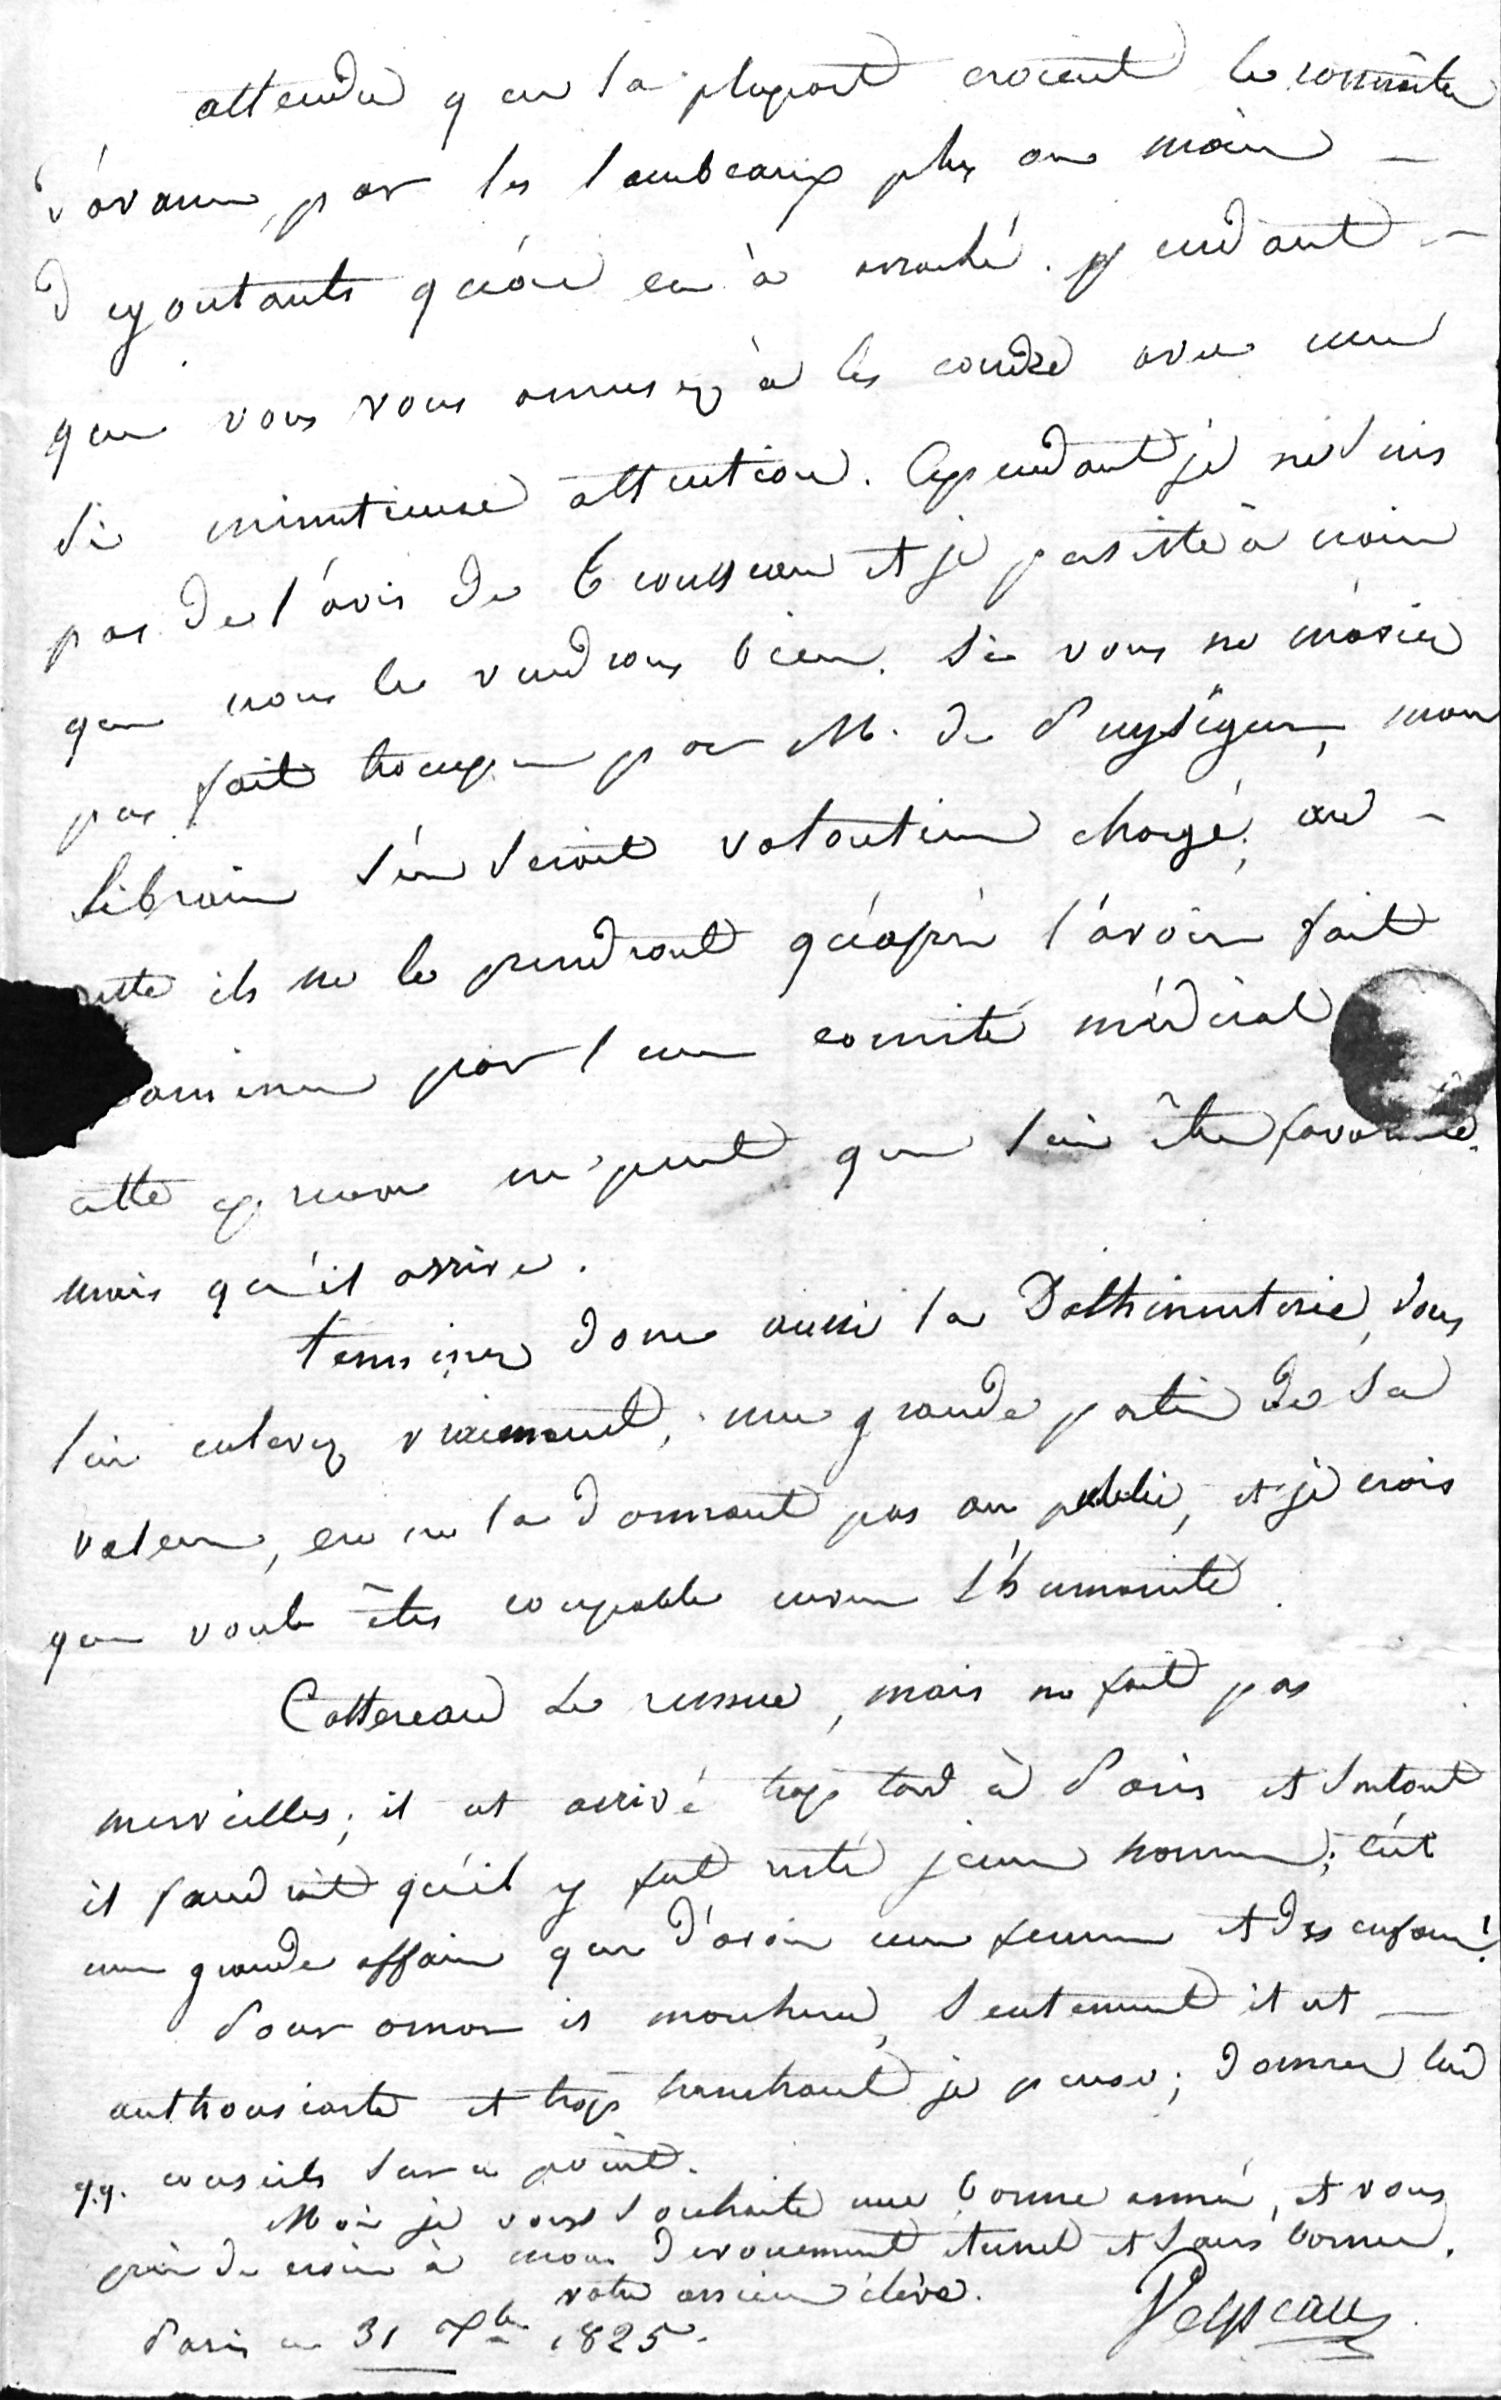 attendu que la plupart croient le connoitre
d'avance, par les lambeaux plus ou moins
dégoutants qu'on en à arraché. pendant
que vous vous amusez à les coudre avec une
si minutieuse attention. Cependant je ne suis
pas de l'avis de Trousseau et je persiste à croire
que nous le vendrons bien. Si vous ne m'aviez
pas fait tromper par M. de Puységur, mon
libraire s'en seroit volontiers chargé; au
reste ils ne le prendront qu'après l'avoir fait
examiner par leur comité médical
cette épreuve ne peut que lui être favorable.
mais qu'il arrive.
terminez donc aussi la Dothinenterie, vous
lui enlevez vraiment, une grande partie de sa
valeur, en ne la donnant pas au public, et je crois
que vous êtes coupable envers l'humanité.
Cottereau se remue, mais ne fait pas
merveilles; il est arrivé trop tard à Paris et surtout
il faudroit qu'il y fut resté jeune homme; c'est
une grande affaire que d'avoir une femme et des enfans!
Pour il marchera, seulement il est
enthousiaste et trop tranchant je pense; donnez lui
q.q. conseils sur ce point.
Moi je vous souhaite une bonne année, et vous
prie de croire à mon devouement éternel et sans bornes.
votre ancien élève.
Velpeau
Paris ce 31 Xbre 1825.